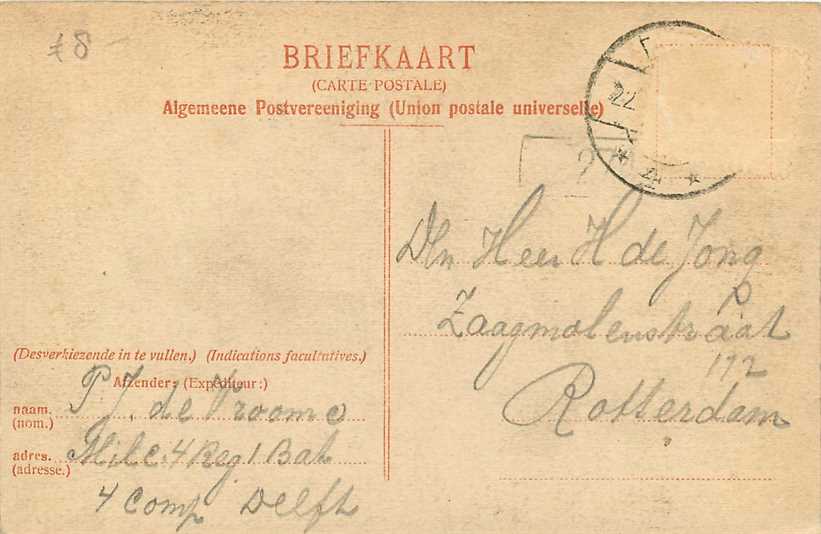 8
BRIEFKAART
(CARTE POSTALE)
Algemeene Postvereeniging (Union postale universelle)
22
2
Den Heer H de Jong
Zaagmolenstraat
112
Rotterdam
(Desverkiezende in te vullen.) (Indications facultatives.)
Afzender: (Expéditeur:)
naam. P. J. de Vroome
(nom.)
adres. Milc. 4 Reg 1 Bat
(adresse.)
4 Comp Delft